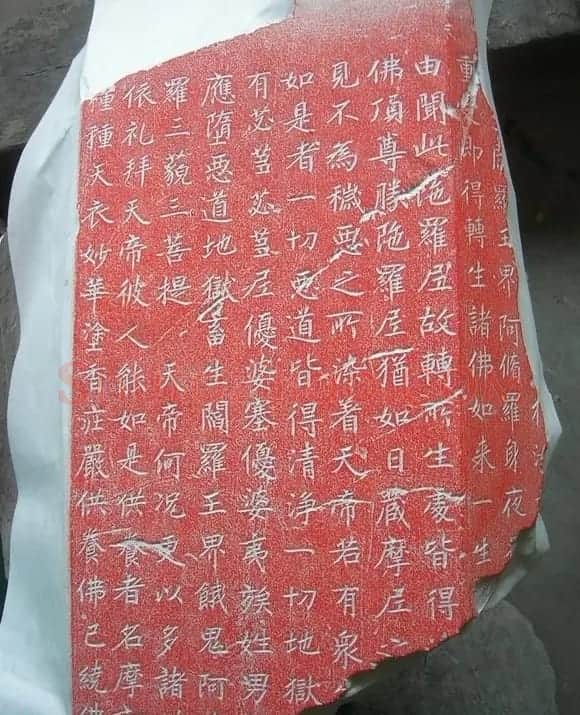 羅王界阿脩羅身夜
重受即得轉生諸佛如来一生
由聞此陁羅尼故轉所生處皆得
佛頂尊勝陁羅尼猶如日藏摩尼之
見不為穢惡之所染着天帝若有衆
如是者一切惡道皆得清浄一切地獄
有苾蒭苾蒭尼優婆塞優婆夷族姓男
應墮惡道地獄畜生閻羅王界餓鬼阿
羅三藐三菩提 天帝何況更以多諸
依礼拜天帝彼人能如是供養者名摩
種種天衣妙華塗香莊嚴供養佛已繞佛